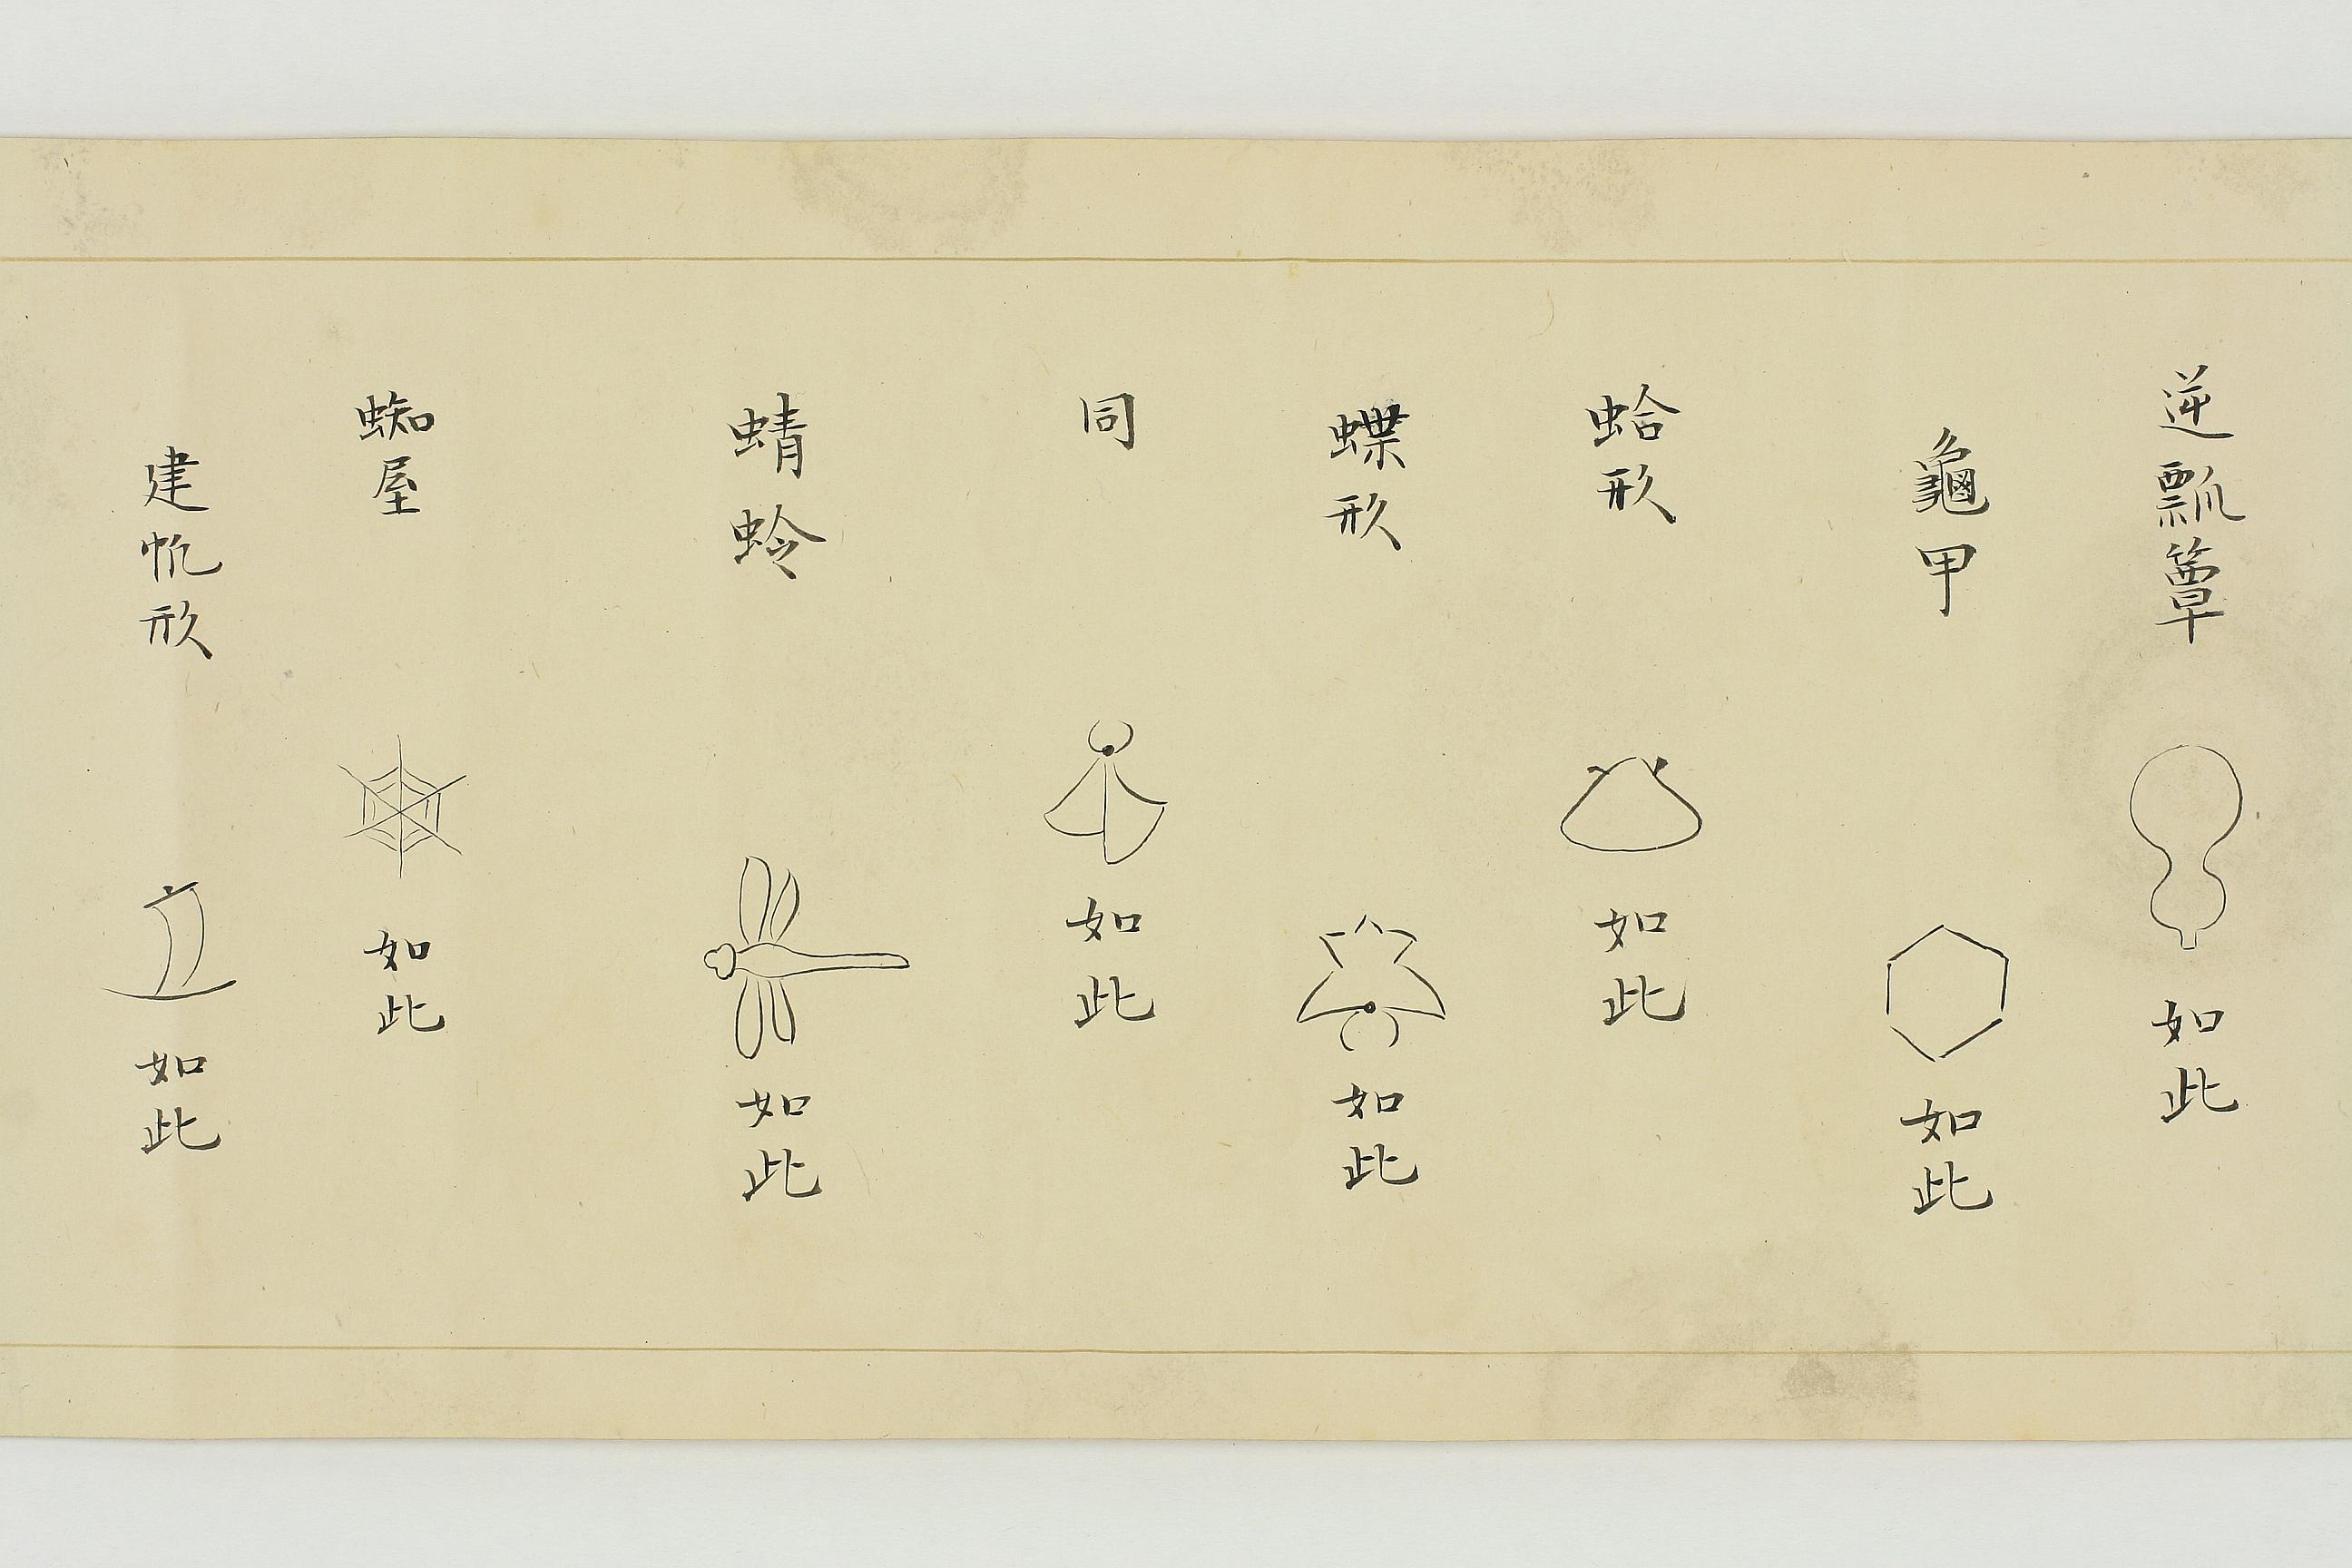 逆瓢簞 如此
龜甲 如此
蛤形 如此
蝶形 如此
同 如此
蜻蛉 如此
蜘屋 如此
建帆形 如此